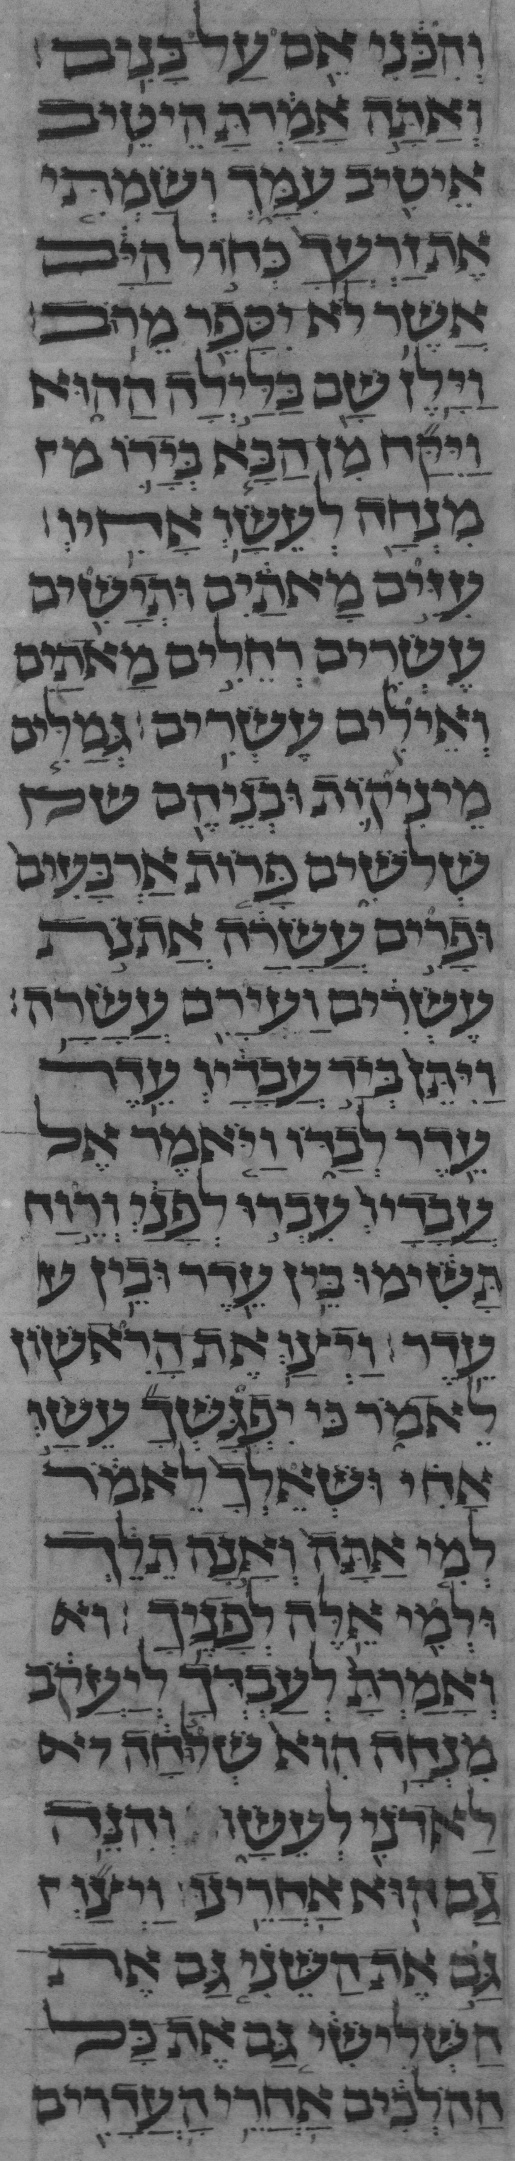 וְהִכַּ֔נִי אֵ֖ם עַל־בָּנִֽים׃
וְאַתָּ֣ה אָמַ֔רְתָּ הֵיטֵ֥יב
אֵיטִ֖יב עִמָּ֑ךְ וְשַׂמְתִּ֤י
אֶֽת־זַרְעֲךָ֙ כְּח֣וֹל הַיָּ֔ם
אֲשֶׁ֥ר לֹא־יִסָּפֵ֖ר מֵרֹֽב׃
וַיָּ֥לֶן שָׁ֖ם בַּלַּ֣יְלָה הַה֑וּא
וַיִּקַּ֞ח מִן־הַבָּ֧א בְיָד֛וֹ מ
מִנְחָ֖ה לְעֵשָׂ֥ו אָחִֽיו׃
עִזִּ֣ים מָאתַ֔יִם וּתְיָשִׁ֖ים
עֶשְׂרִ֑ים רְחֵלִ֥ים מָאתַ֖יִם
וְאֵילִ֥ים עֶשְׂרִֽים׃ גְּמַלִּ֧ים
מֵינִיק֛וֹת וּבְנֵיהֶ֖ם של
שְׁלֹשִׁ֑ים פָּר֤וֹת אַרְבָּעִים֙
וּפָרִ֣ים עֲשָׂרָ֔ה אֲתֹנֹ֣ת
עֶשְׂרִ֔ים וַעְיָרִ֖ם עֲשָׂרָֽה׃
וַיִּתֵּן֙ בְּיַד־עֲבָדָ֔יו עֵ֥דֶר
עֵ֖דֶר לְבַדּ֑וֹ וַ֤יֹּאמֶר אֶל
עֲבָדָיו֙ עִבְר֣וּ לְפָנַ֔י וְרֶ֣וַח
תָּשִׂ֔ימוּ בֵּ֥ין עֵ֖דֶר וּבֵ֥ין ע
עֵֽדֶר׃ וַיְצַ֥ו אֶת־הָרִאשׁ֖וֹן
לֵאמֹ֑ר כִּ֣י יִֽפְגָּשְׁךָ֞ עֵשָׂ֣ו
אָחִ֗י וּשְׁאֵֽלְךָ֙ לֵאמֹ֔ר
לְמִי־אַתָּה֙ וְאָ֣נָה תֵלֵ֔ךְ
וּלְמִ֖י אֵ֥לֶּה לְפָנֶֽיךָ׃ וא
וְאָֽמַרְתָּ֙ לְעַבְדְּךָ֣ לְיַעֲקֹ֔ב
מִנְחָ֥ה הִוא֙ שְׁלוּחָ֔ה לא
לַֽאדֹנִ֖י לְעֵשָׂ֑ו וְהִנֵּ֥ה
גַם־ה֖וּא אַחֲרֵֽינוּ׃ וַיְצַ֞ו
גַּ֣ם אֶת־הַשֵּׁנִ֗י גַּ֚ם אֶת
הַשְּׁלִישִׁ֔י גַּ֚ם אֶת־כָּל
הַהֹ֣לְכִ֔ים אַחֲרֵ֥י הָעֲדָרִ֖ים